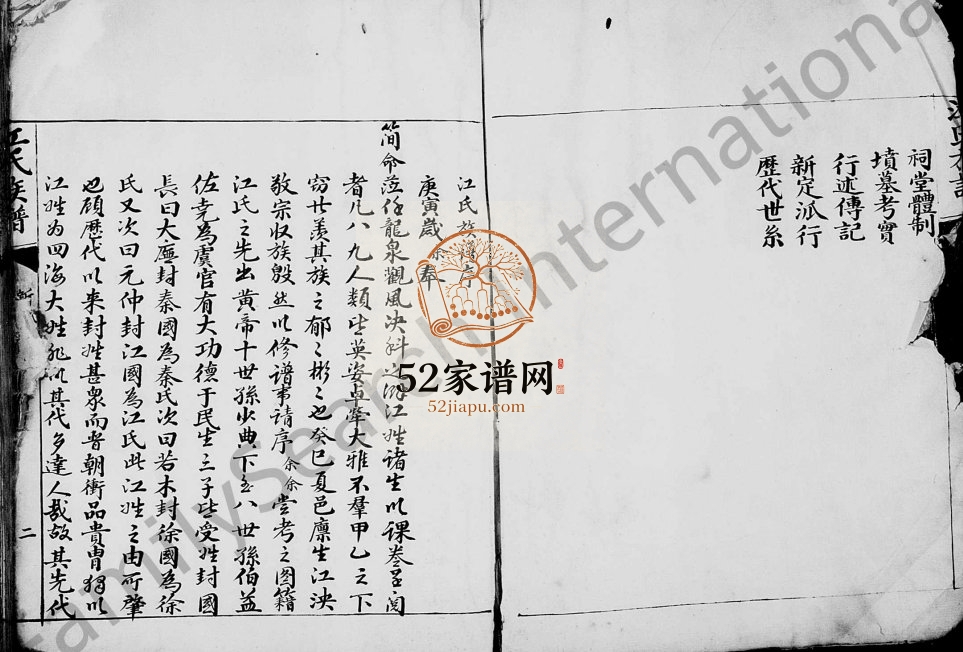 祠堂體制
墳墓考實
行述傳記
新定派行
歷代世系
江氏族譜序
庚寅歲余奉
简命涖任龍泉觀風决科之餘江姓诸生以課卷呈阅
者凡八九人類皆英姿卓犖大雅不羣甲乙之下
窃廿羨其族之郁〻彬〻也癸巳夏邑廪生江泱
敬宗収族殷然以修谱事请序余余尝考之图籍
江氏之先出黄帝十世孫少典下至八世孫伯益
佐尭為虞官有大功德于民生三子皆受姓封國
長曰大廉封秦國為秦氏次曰若木封徐國為徐
氏又次曰元仲封江國為江氏此江姓之由所肇
也顧歷代以来封姓甚衆而晋朝衝品貴胄独以
江姓为四海大姓非以其代多達人哉故其先代
江氏族譜
二
52家谱网
52jiapu.com
FamilySearch International